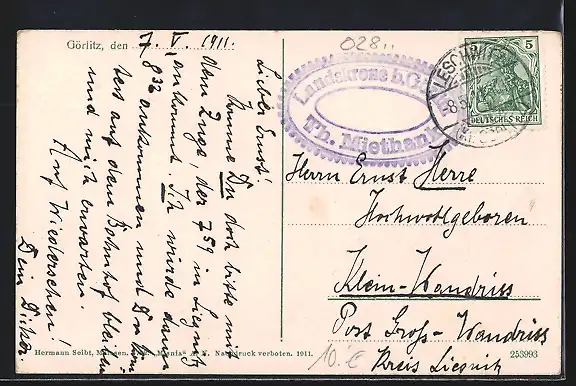 Görlitz, den 7. V. 1911.
Lieber Ernst!
Komme Du doch bitte mit
dem Zuge, der 7 59 in Liegnitz
ankommt. Ich würde dann
8 32 ankommen und Du könntest auf dem Bahnhof bleiben
und mich erwarten.
Auf Wiedersehen!
Dein
028
Landskrone b. G
Th. Miethank
5
DEUTSCHES REICH
Herrn Ernst Herre
Hochwohlgeboren
Klein-Wandriss
Post Gross-Wandriss
Kreis Liegnitz
10.€
Hermann Seibt, Meissen. Nachdruck verboten. 1911.
253993